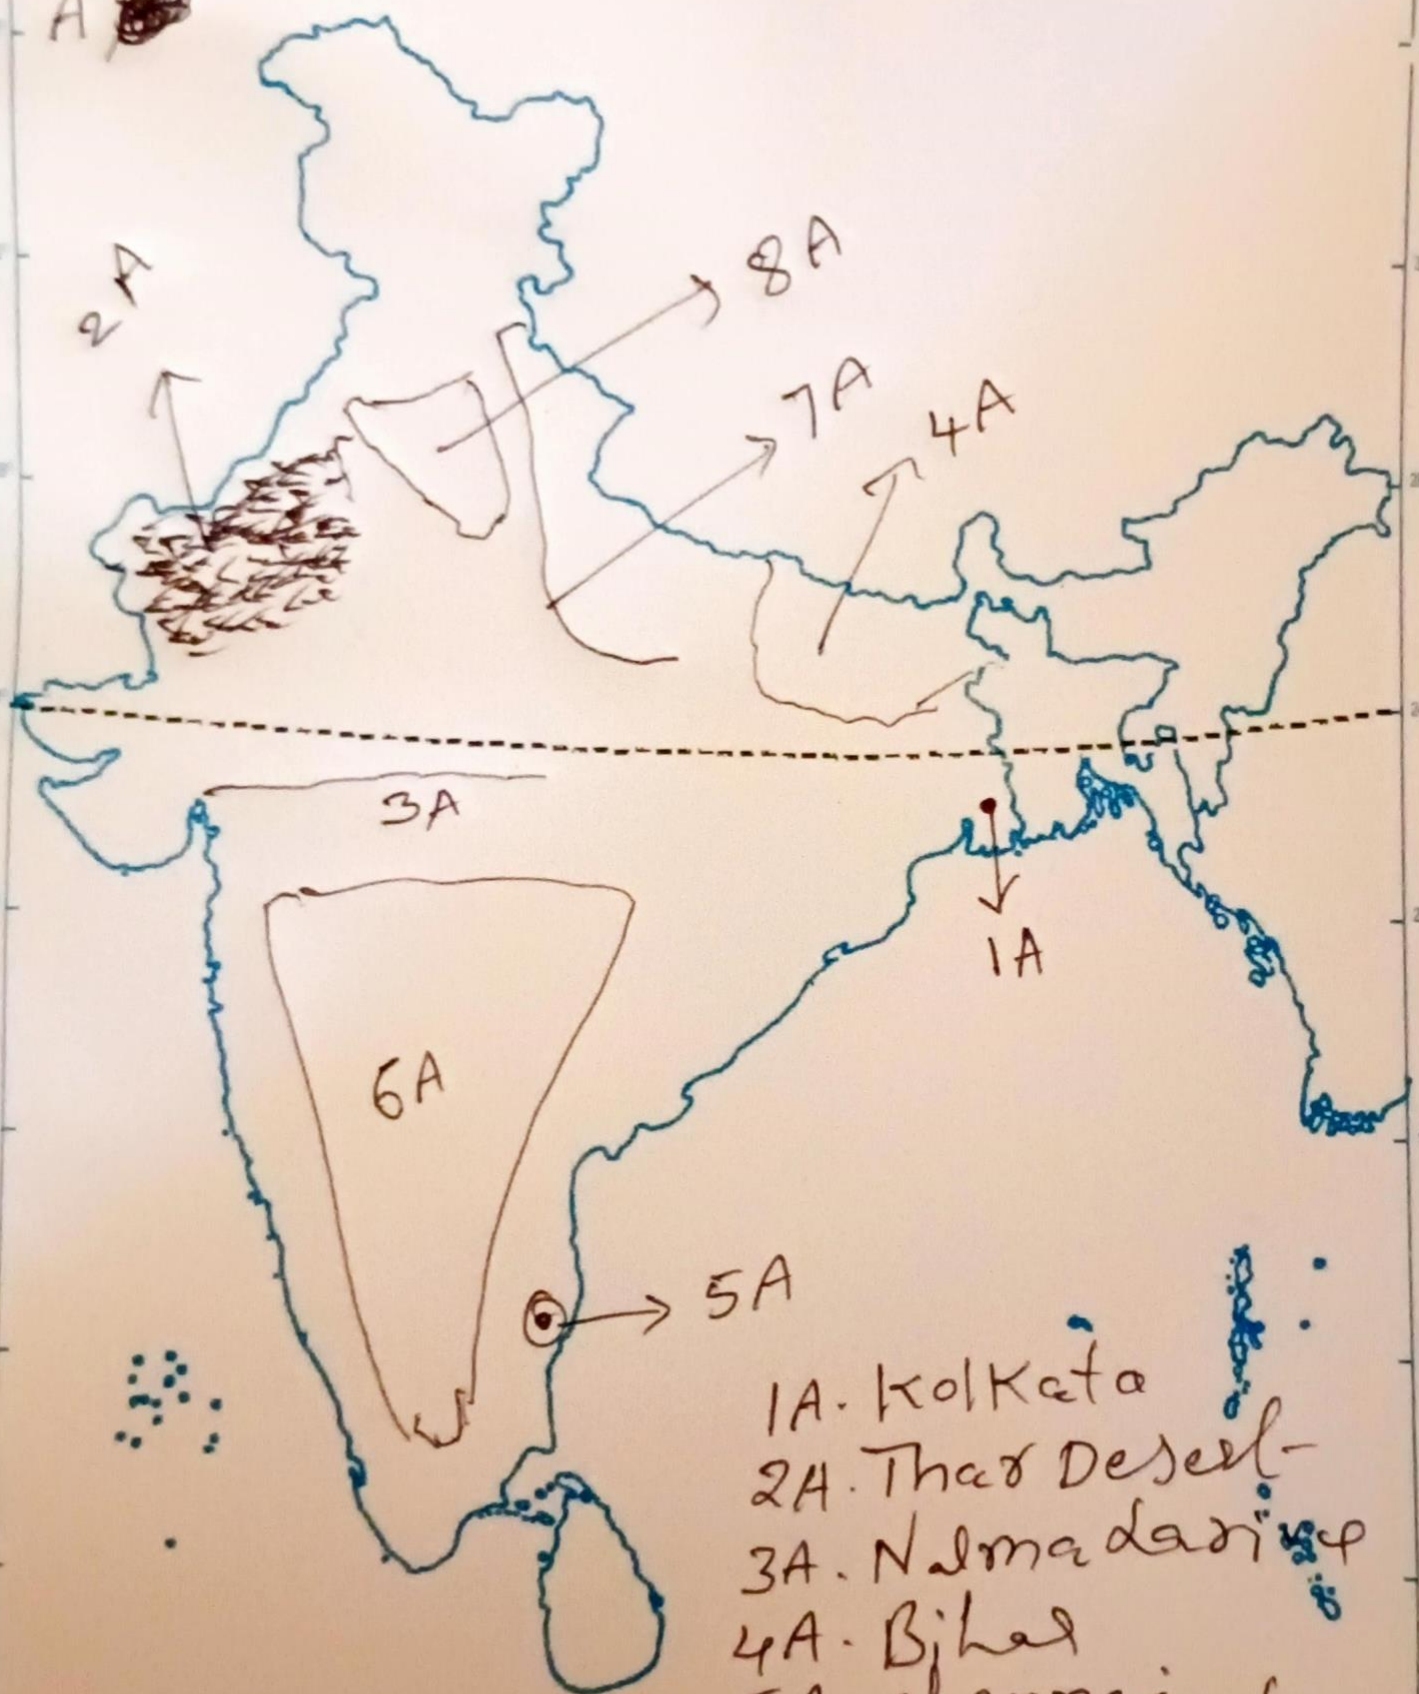 A
8A
2A
7A
4A
3A
1A
6A
5A
1A. Kolkata
2A. Thar Desert
3A. Nalmada
4A. Bihar
5A